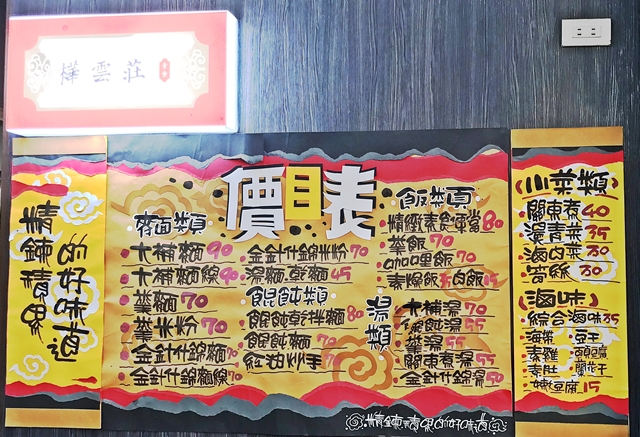 樺雲莊
精鍊積累
的好味道
價目表
麵類
大補麵 90
大補麵線 90
羹麵 70
羹米粉 70
金針什錦麵 70
金針什錦麵線 70
金針什錦米粉 70
湯麵.乾麵 45
餛飩類
餛飩乾拌麵 80
餛飩麵 70
紅油炒手 70
飯類
精緻素食便當 80
羹飯 70
咖哩飯 70
素燥飯 白飯 15
湯類
大補湯 70
餛飩湯 55
羹湯 55
關東煮湯 55
金針什錦湯 50
小菜類
關東煮 40
燙青菜 35
滷白菜 30
筍絲 30
滷味
綜合滷味 35
海帶 豆干
素雞
素肚 蘭花干
嫩豆腐 15